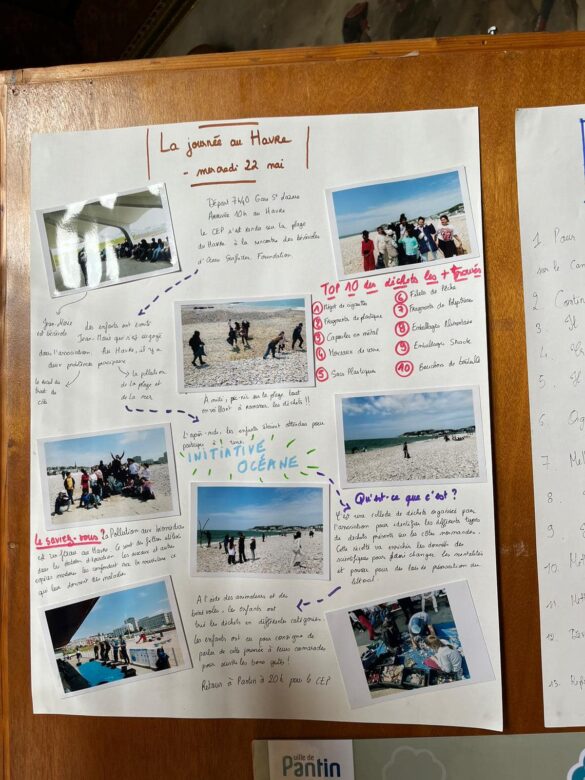 La journée au Havre
- mercredi 22 mai
Départ 7h40 Gare St Lazare
Arrivée 10h au Havre
le CEP s'est rendu sur la plage
du Havre à la rencontre des bénévoles
d'Ocean Surfrider Foundation.
TOP 10 des déchets les + trouvés
① Mégot de cigarettes
② Fragments de plastique
③ Capsules en métal
④ Morceaux de verre
⑤ Sacs Plastiques
⑥ Filets de Pêche
⑦ Fragments de Polystyrène
⑧ Emballages Alimentaire
⑨ Emballage Snack
⑩ Bouchons de bouteille
Jean-Marie
est bénévole
dans l'association
des enfants ont écouté
Jean-Marie qui s'est engagé
au Havre, il y a
deux problèmes principaux
le recul du
trait de
côte
la pollution
de la plage et
de la mer
A midi, pic-nic sur la plage tout
en veillant à ramasser les déchets !!
L'après-midi, les enfants étaient attendus pour
participer à une
INITIATIVE
OCÉANE
Qu'est-ce que c'est ?
C'est une collecte de déchets organisée par
l'association pour identifier les différents types
de déchets présents sur les côtes normandes.
Cette récolte va enrichir les données des
scientifiques pour faire changer les mentalités
et pousser pour des lois de préservation du
littoral.
Le saviez-vous ? La Pollution aux biomédias
est un fléau au Havre. Ce sont des filtres utilisés
dans les stations d'épuration. les oiseaux et autres
espèces marines les confondent avec la nourriture ce
qui leur donnent des maladies.
A l'aide des animateurs et des
bénévoles, les enfants ont
trié les déchets en différentes catégories.
les enfants ont eu pour consigne de
parler de cette journée à leurs camarades
pour semer les bons gestes !
Retour à Pantin à 20h pour le CEP
ville de
Pantin
1. Pour
sur le Cam
2. Contin
3.
4.
5.
6.
7.
8.
9.
10.
11.
12.
13.